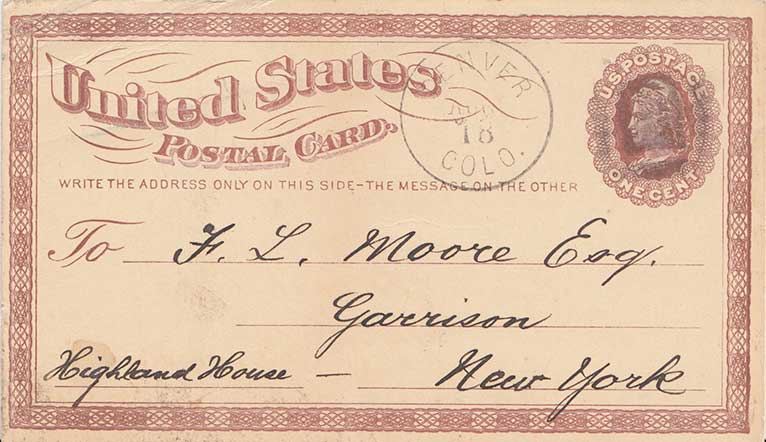 United States
Postal Card.
WRITE THE ADDRESS ONLY ON THIS SIDE–THE MESSAGE ON THE OTHER
U.S. POSTAGE
ONE CENT
DENVER
18
COLO.
To F. L. Moore Esq.
Garrison
Highland House – New York